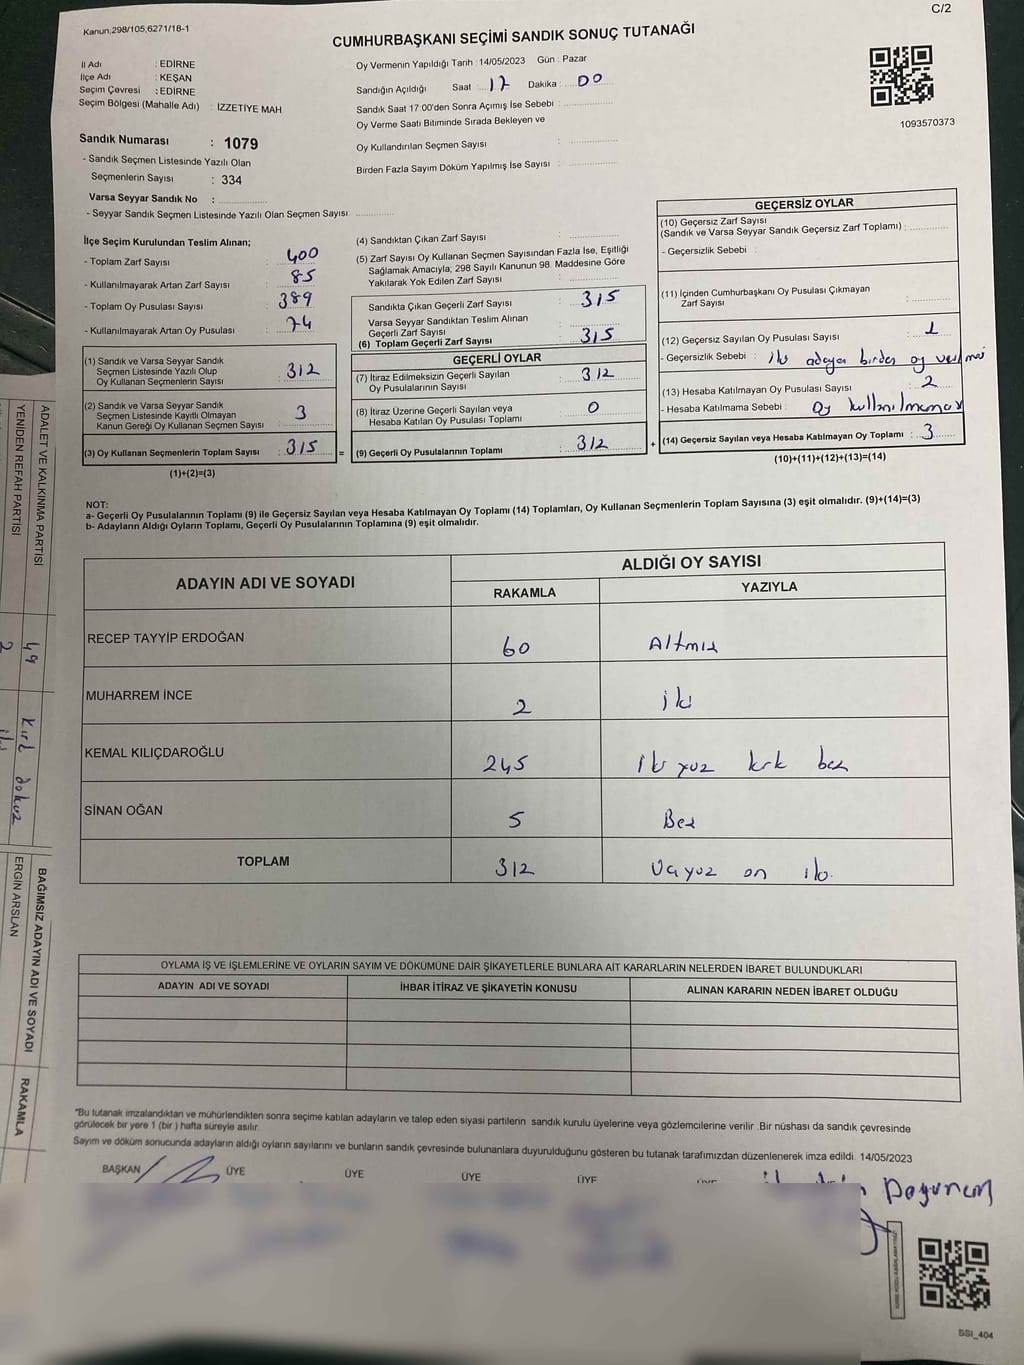 C/2
Kanun,298/105,6271/18-1
CUMHURBAŞKANI SEÇİMİ SANDIK SONUÇ TUTANAĞI
İl Adı : EDİRNE
İlçe Adı : KEŞAN
Seçim Çevresi : EDİRNE
Seçim Bölgesi (Mahalle Adı) : İZZETİYE MAH
Sandık Numarası : 1079
- Sandık Seçmen Listesinde Yazılı Olan
Seçmenlerin Sayısı : 334
Varsa Seyyar Sandık No :
- Seyyar Sandık Seçmen Listesinde Yazılı Olan Seçmen Sayısı
Oy Vermenin Yapıldığı Tarih : 14/05/2023 Gün : Pazar
Sandığın Açıldığı Saat : 17 Dakika : 00
Sandık Saat 17:00'den Sonra Açımış İse Sebebi :
Oy Verme Saati Bitiminde Sırada Bekleyen ve
Oy Kullandırılan Seçmen Sayısı :
Birden Fazla Sayım Döküm Yapılmış İse Sayısı :
1093570373
İlçe Seçim Kurulundan Teslim Alınan;
- Toplam Zarf Sayısı : 400
- Kullanılmayarak Artan Zarf Sayısı : 85
- Toplam Oy Pusulası Sayısı : 389
- Kullanılmayarak Artan Oy Pusulası : 74
(1) Sandık ve Varsa Seyyar Sandık
Seçmen Listesinde Yazılı Olup
Oy Kullanan Seçmenlerin Sayısı : 312
(2) Sandık ve Varsa Seyyar Sandık
Seçmen Listesinde Kayıtlı Olmayan
Kanun Gereği Oy Kullanan Seçmen Sayısı : 3
(3) Oy Kullanan Seçmenlerin Toplam Sayısı : 315 =
(1)+(2)=(3)
(4) Sandıktan Çıkan Zarf Sayısı :
(5) Zarf Sayısı Oy Kullanan Seçmen Sayısından Fazla İse, Eşitliği
Sağlamak Amacıyla; 298 Sayılı Kanunun 98. Maddesine Göre
Yakılarak Yok Edilen Zarf Sayısı :
Sandıkta Çıkan Geçerli Zarf Sayısı : 315
Varsa Seyyar Sandıktan Teslim Alınan
Geçerli Zarf Sayısı :
(6) Toplam Geçerli Zarf Sayısı : 315
GEÇERLİ OYLAR
(7) İtiraz Edilmeksizin Geçerli Sayılan
Oy Pusulalarının Sayısı : 312
(8) İtiraz Üzerine Geçerli Sayılan veya
Hesaba Katılan Oy Pusulası Toplamı : 0
(9) Geçerli Oy Pusulalarının Toplamı : 312 +
GEÇERSİZ OYLAR
(10) Geçersiz Zarf Sayısı
(Sandık ve Varsa Seyyar Sandık Geçersiz Zarf Toplamı) :
- Geçersizlik Sebebi :
(11) İçinden Cumhurbaşkanı Oy Pusulası Çıkmayan
Zarf Sayısı :
(12) Geçersiz Sayılan Oy Pusulası Sayısı : 1
- Geçersizlik Sebebi : iki adaya birden oy verilmesi
(13) Hesaba Katılmayan Oy Pusulası Sayısı : 2
- Hesaba Katılmama Sebebi : Oy kullanılmaması
(14) Geçersiz Sayılan veya Hesaba Katılmayan Oy Toplamı : 3
(10)+(11)+(12)+(13)=(14)
NOT:
a- Geçerli Oy Pusulalarının Toplamı (9) ile Geçersiz Sayılan veya Hesaba Katılmayan Oy Toplamı (14) Toplamları, Oy Kullanan Seçmenlerin Toplam Sayısına (3) eşit olmalıdır. (9)+(14)=(3)
b- Adayların Aldığı Oyların Toplamı, Geçerli Oy Pusulalarının Toplamına (9) eşit olmalıdır.
ADAYIN ADI VE SOYADI ALDIĞI OY SAYISI
RAKAMLA YAZIYLA
RECEP TAYYİP ERDOĞAN 60 Altmış
MUHARREM İNCE 2 iki
KEMAL KILIÇDAROĞLU 245 İki yüz kırk beş
SİNAN OĞAN 5 Beş
TOPLAM 312 Üçyüz on iki
OYLAMA İŞ VE İŞLEMLERİNE VE OYLARIN SAYIM VE DÖKÜMÜNE DAİR ŞİKAYETLERLE BUNLARA AİT KARARLARIN NELERDEN İBARET BULUNDUKLARI
ADAYIN ADI VE SOYADI İHBAR İTİRAZ VE ŞİKAYETİN KONUSU ALINAN KARARIN NEDEN İBARET OLDUĞU
*Bu tutanak imzalandıktan ve mühürlendikten sonra seçime katılan adayların ve talep eden siyasi partilerin sandık kurulu üyelerine veya gözlemcilerine verilir .Bir nüshası da sandık çevresinde
görülecek bir yere 1 (bir ) hafta süreyle asılır.
Sayım ve döküm sonucunda adayların aldığı oyların sayılarını ve bunların sandık çevresinde bulunanlara duyurulduğunu gösteren bu tutanak tarafımızdan düzenlenerek imza edildi. 14/05/2023
BAŞKAN ÜYE ÜYE ÜYE ÜYE
SSI_404
ADALET VE KALKINMA PARTİSİ
YENİDEN REFAH PARTİSİ
49 kırk dokuz
2 iki
BAĞIMSIZ ADAYIN ADI VE SOYADI RAKAMLA
ERGİN ARSLAN